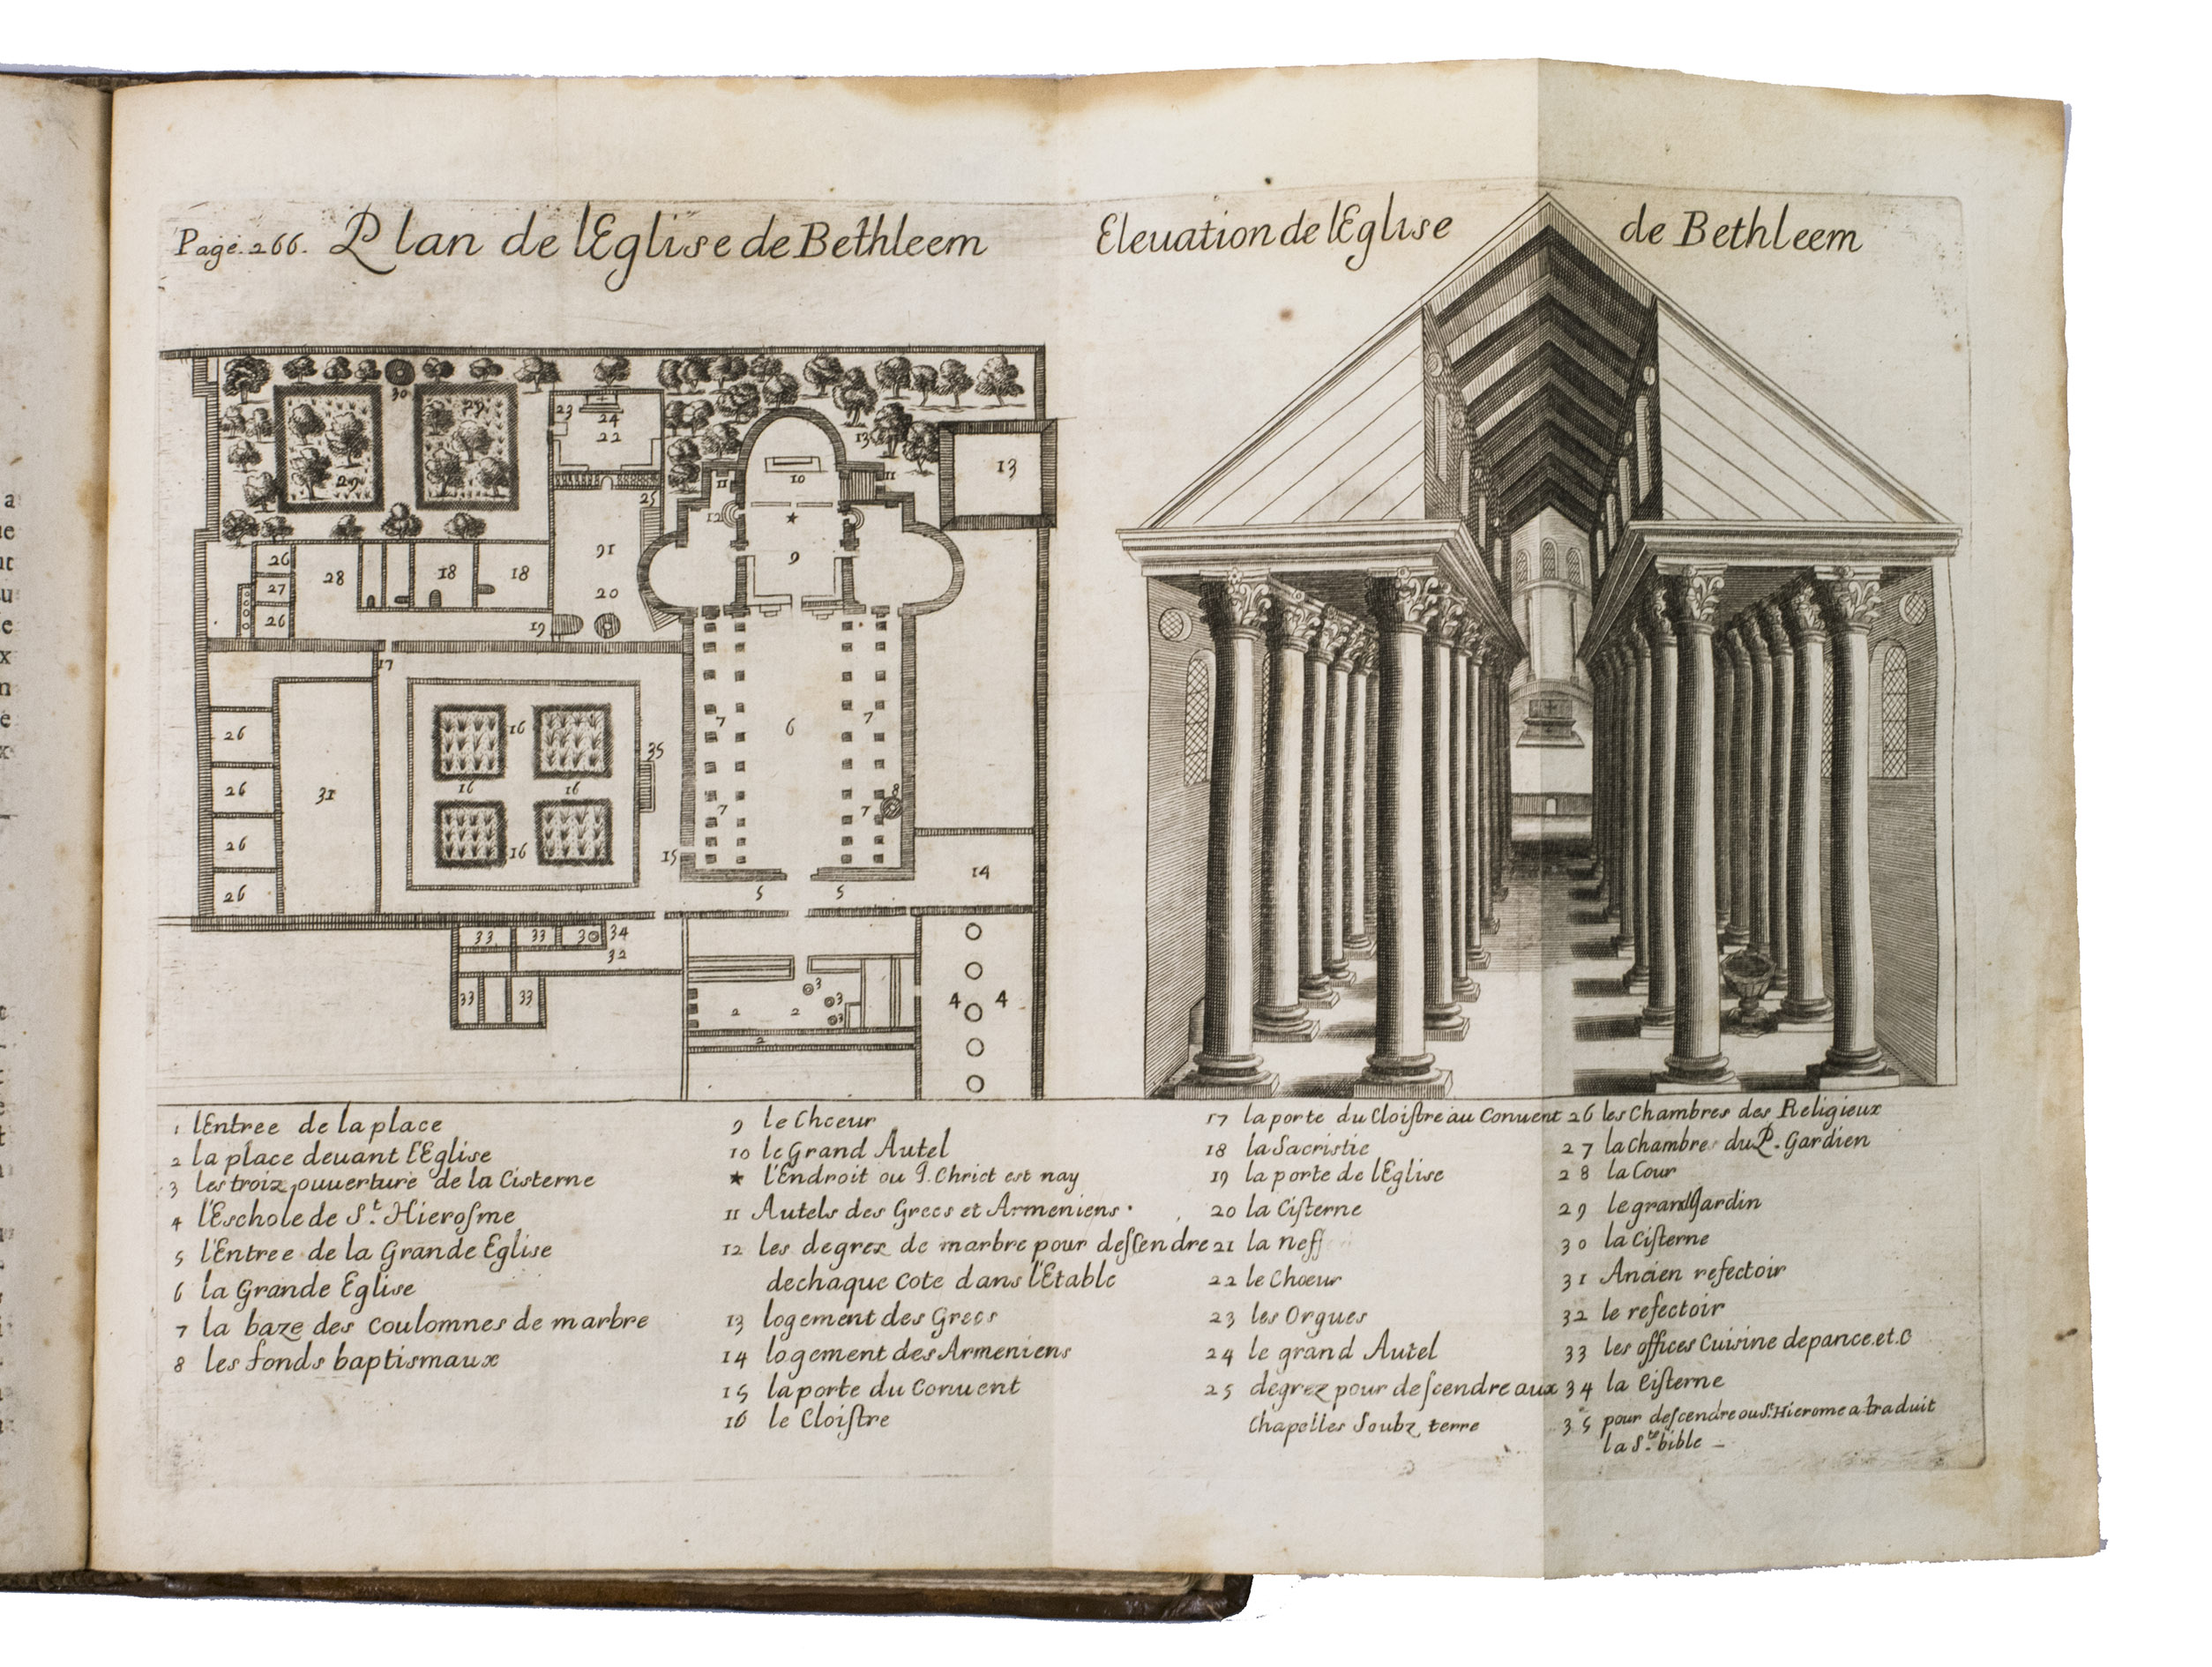 Page. 266. Plan de lEglise de Bethleem
Eleuation de lEglise de Bethleem
1 lEntree de la place
2 la place deuant lEglise
3 les troiz ouuerture de la Cisterne
4 l'Eschole de St. Hierosme
5 l'Entree de la Grande Eglise
6 la Grande Eglise
7 la baze des coulomnes de marbre
8 les fonds baptismaux
9 le Chœur
10 le Grand Autel
★ l'Endroit ou J. Christ est nay
11 Autels des Grecs et Armeniens.
12 les degrez de marbre pour desCendre
dechaque Cote dans l'Etable
13 logement des Grecs
14 logement des Armeniens
15 la porte du Conuent
16 le Cloistre
17 la porte du Cloistre au Conuent
18 la Sacristie
19 la porte de lEglise
20 la Cisterne
21 la neff
22 le Chœur
23 les Orgues
24 le grand Autel
25 degrez pour descendre aux
Chapelles Soubz terre
26 les Chambres des Religieux
27 la Chambre du P. Gardien
28 la Cour
29 le grand Jardin
30 la Cisterne
31 Ancien refectoir
32 le refectoir
33 les offices Cuisine depance.et.C
34 la Cisterne
35 pour descendre ou St. Hierome a traduit
la Ste. bible –